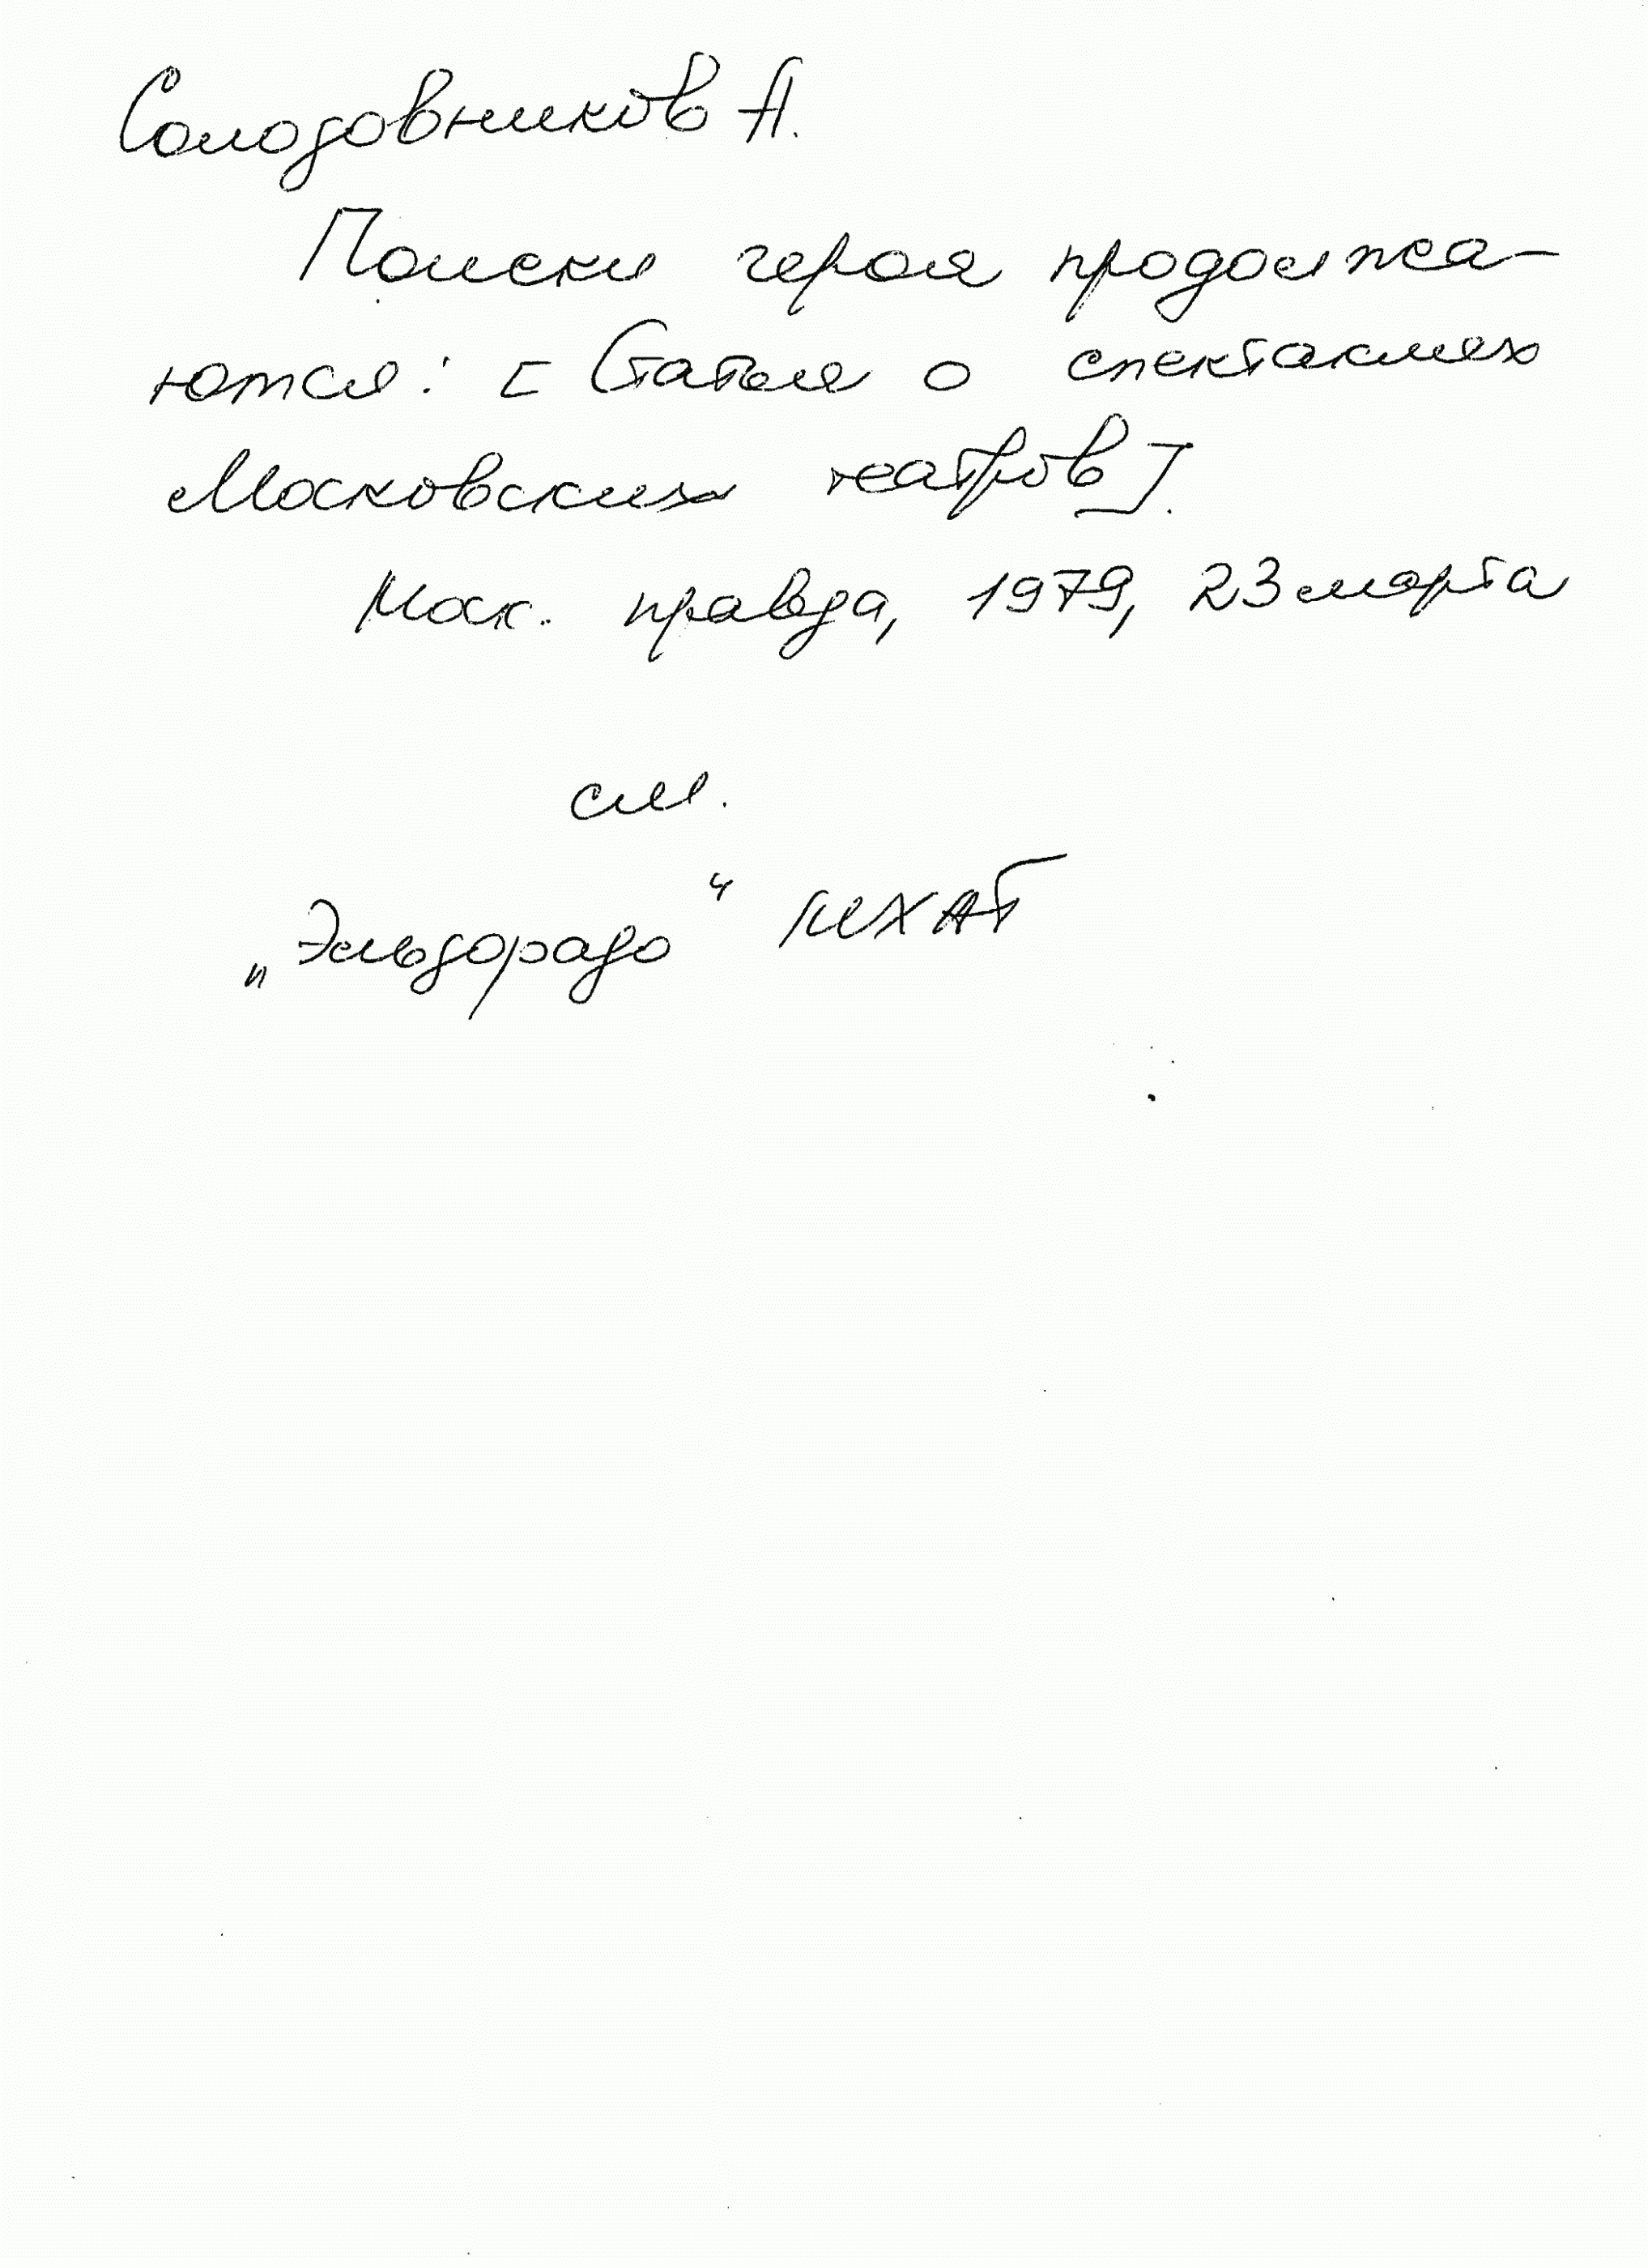 Солодовников А.
Поиски героя продолжа-
ются: [Статья о спектаклях
Московских театров].
Моск. правда, 1979, 23 марта
см.
„Эльдорадо“ МХАТ